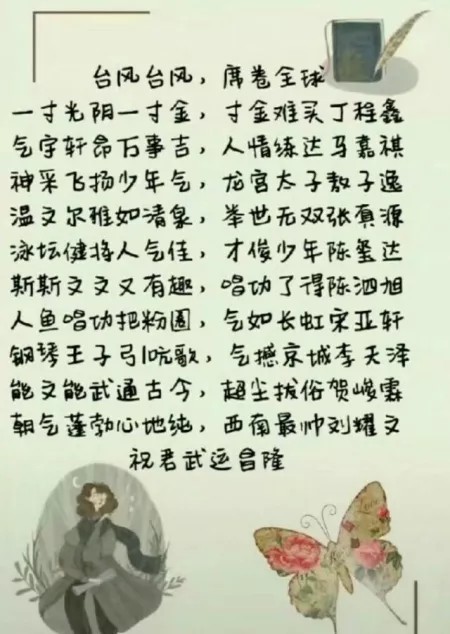 台风台风，席卷全球
一寸光阴一寸金，寸金难买丁程鑫
气宇轩昂万事吉，人情练达马嘉祺
神采飞扬少年气，龙宫太子敖子逸
温文尔雅如清泉，举世无双张真源
泳坛健将人气佳，才俊少年陈玺达
斯斯文文又有趣，唱功了得陈泗旭
人鱼唱功把粉圈，气如长虹宋亚轩
钢琴王子引吭歌，气撼京城李天泽
能文能武通古今，超尘拔俗贺峻霖
朝气蓬勃心地纯，西南最帅刘耀文
祝君武运昌隆